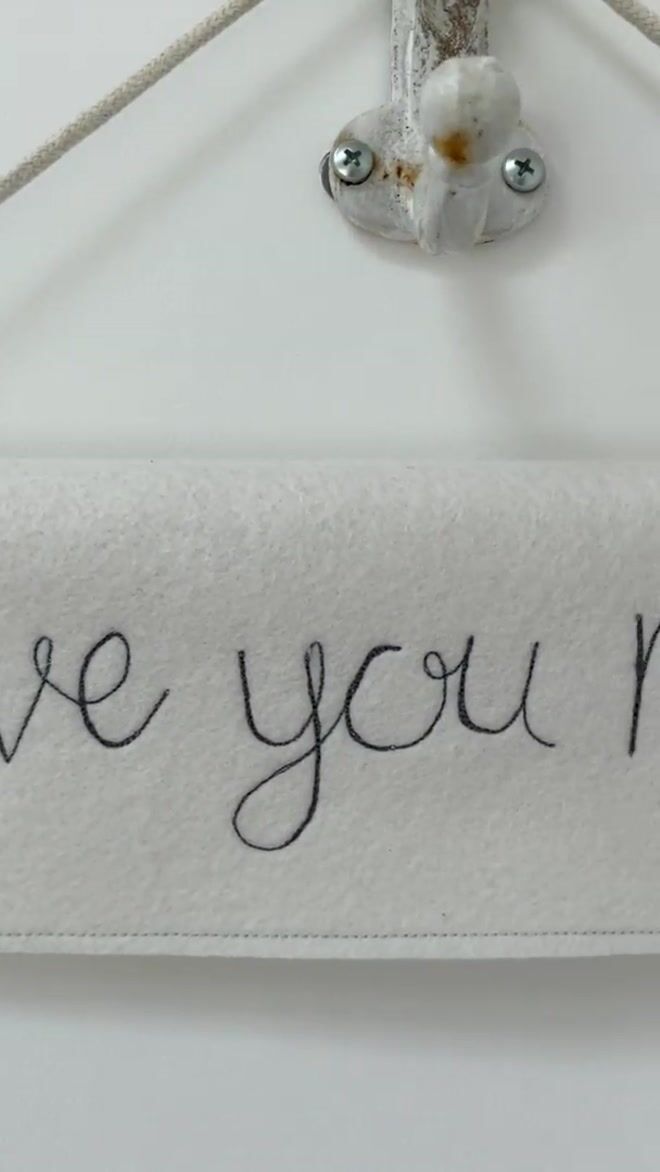 ve you